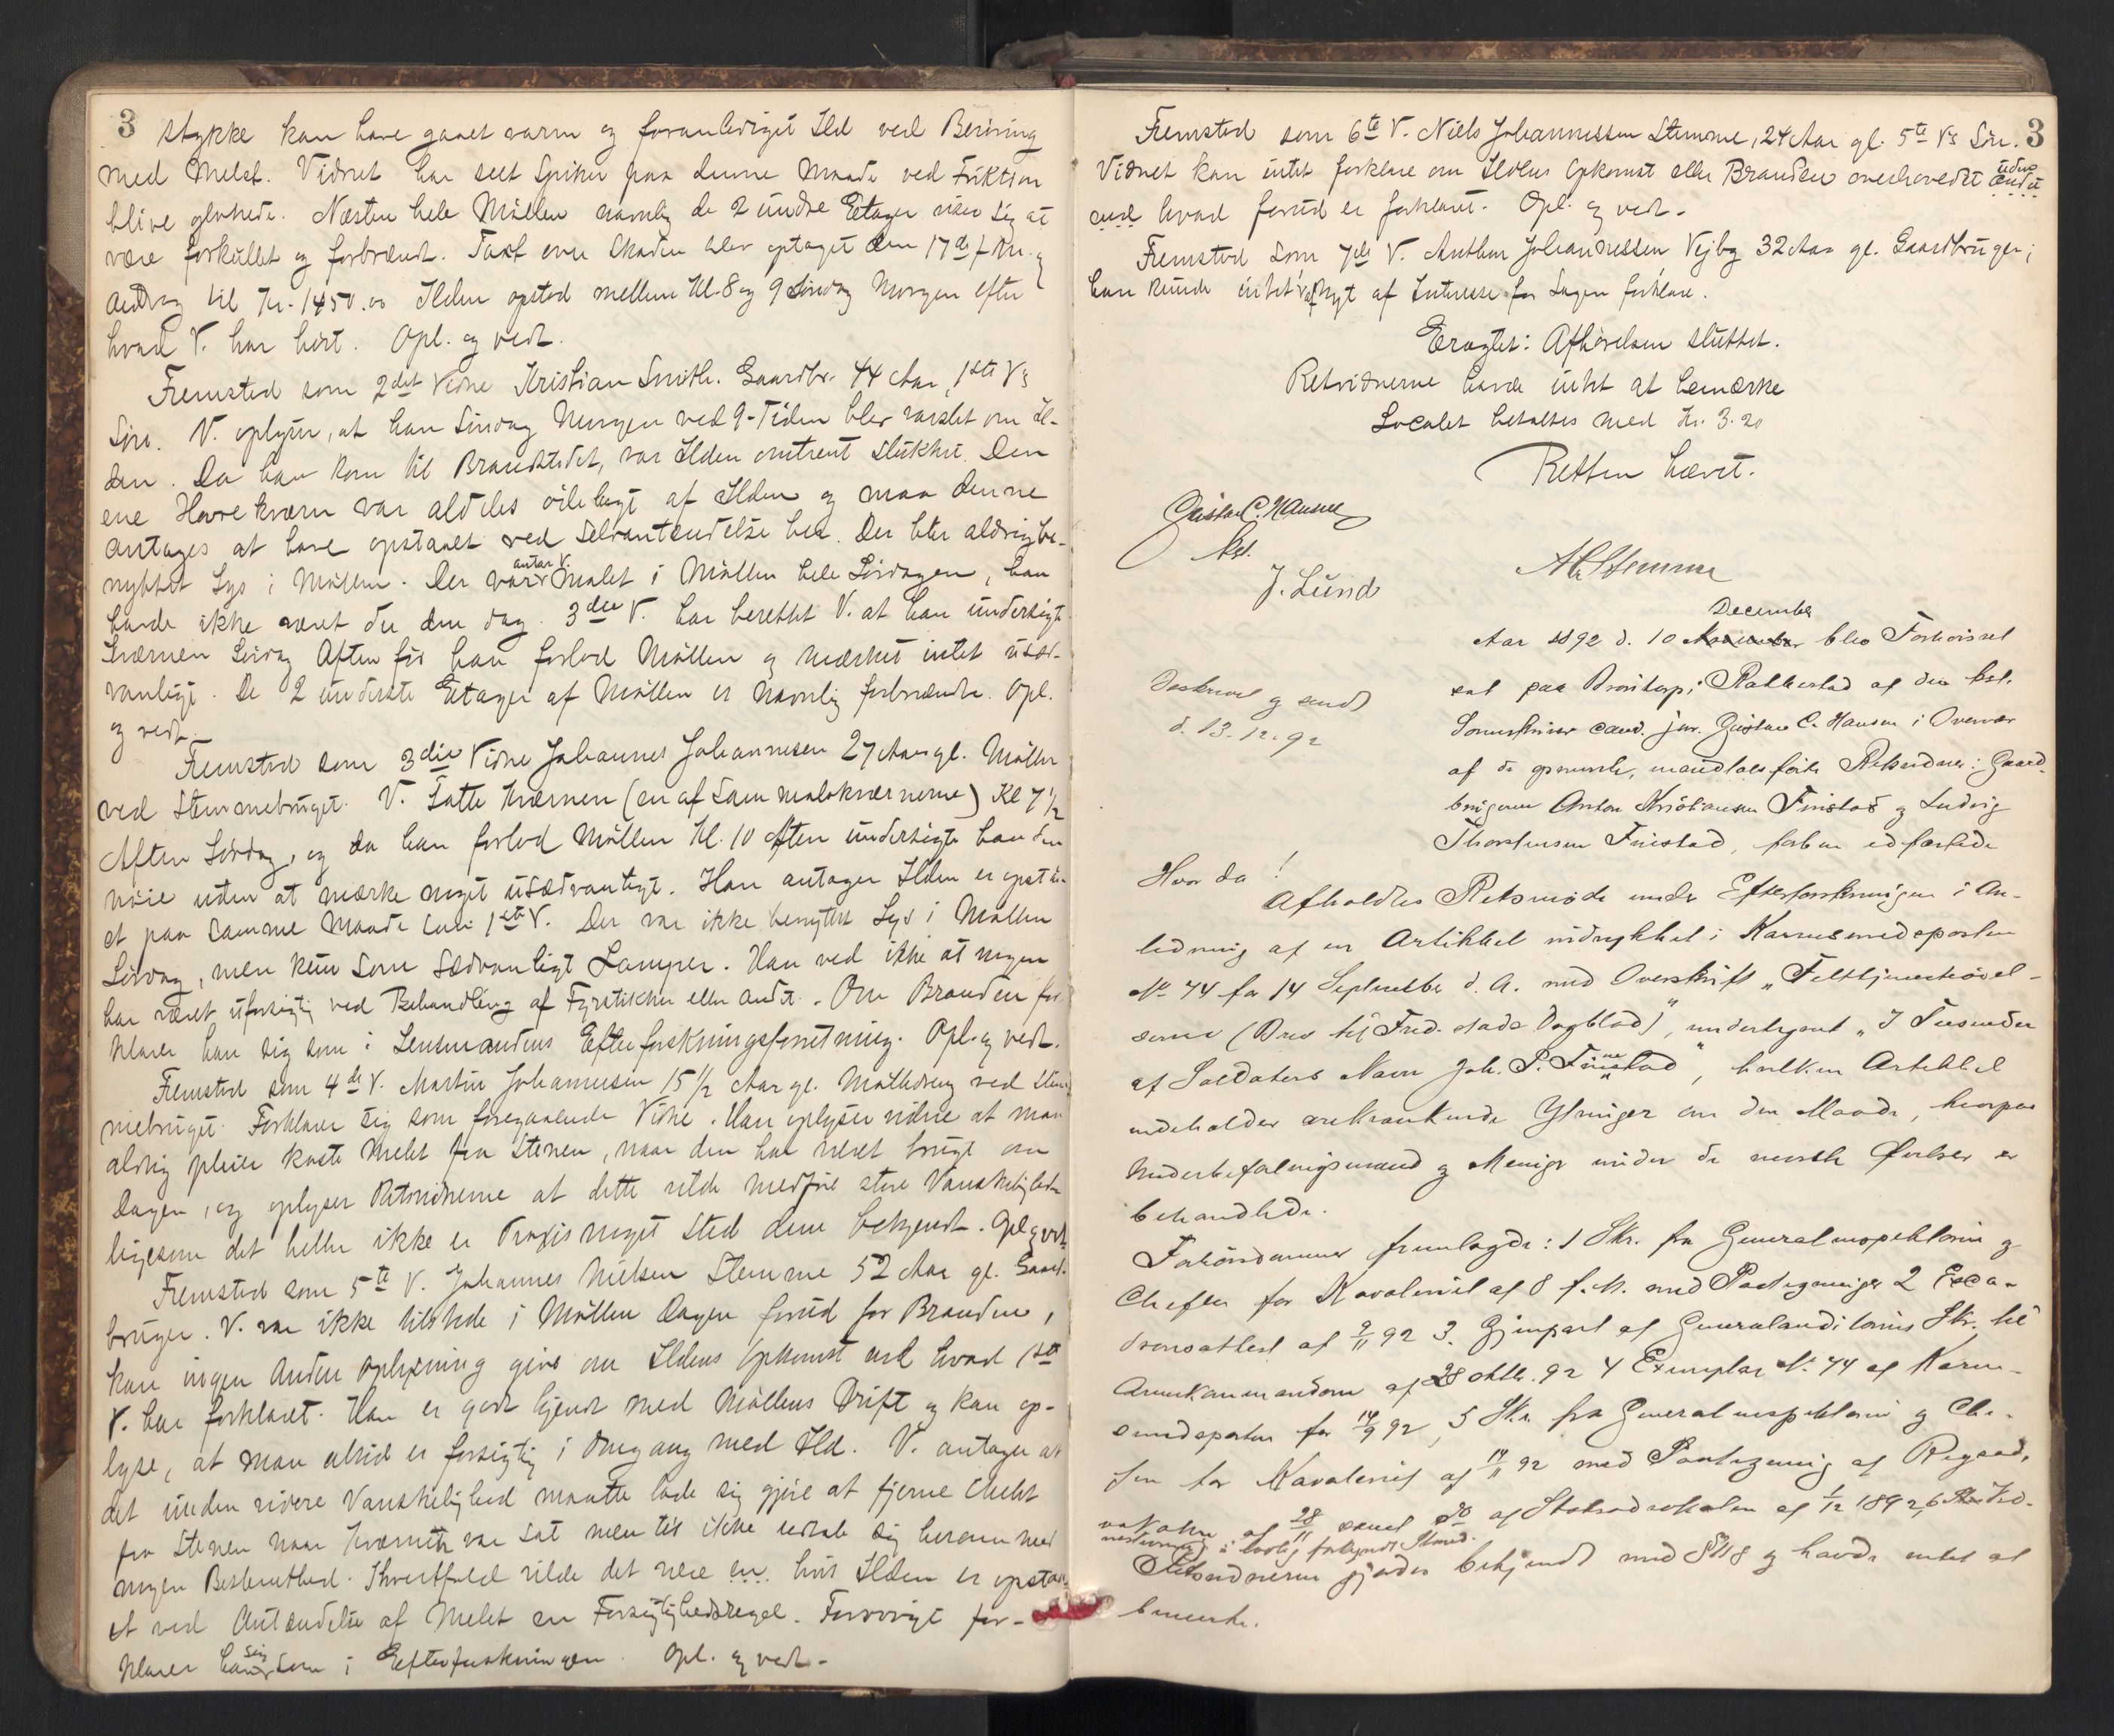 3
stykke kan have gaaet varm og foranlediget Ild ved Berøring
med Melet. Vidnet har seet Spiker paa denne Maade ved Friktion
blive gloende. Næsten hele Møllen navnlig de 2 undre Etager viser sig at
være forkullet og forbrændt. Taxt over Skaden blev optaget den 17de f. M. og
androg til Kr. 1450.00 Ilden opstod mellem Kl. 8 og 9 Søndag Morgen efter
hvad V. har hørt. Opl. og vedt.
Fremstod som 2det Vidne Kristian Smith. Gaardbr. 44 Aar, 1ste V's
Søn. V. oplyser, at han Søndag Morgen ved 9-Tiden blev varslet om Il-
den. Da han kom til Brandstedet, var Ilden omtrent slukket. Den
ene Havrekværn var aldeles ødelagt af Ilden og maa denne
antages at have opstaaet ved Selvantændelse her. Der blev aldrig be-
nyttet Lys i Møllen. Der var antar V. malet i Møllen hele Lørdagen, han
havde ikke været der den dag. 3die V. har berettet V. at han undersøgte
Kværnen Lørdag Aften før han forlod Møllen og mærket intet usæd-
vanligt. De 2 underste Etager af Møllen er navnlig forbrændte. Opl.
og vedt.
Fremstod som 3die Vidne Johannes Johannesen 27 Aar gl. Møller
ved Stemmebruget. V. satte Kværnen (en af Sammalskværnerne) Kl 7 1/2
Aften Lørdag, og da han forlod Møllen Kl. 10 Aften undersøgte han den
nøie uden at mærke noget usædvanligt. Han antager Ilden er opstaa-
et paa samme Maade som 1ste V. Der var ikke benyttet Lys i Møllen
Lørdag, men kun som sædvanligt Lamper. Han ved ikke at nogen
har været uforsigtig ved Behandling af Fyrstikker eller andet. Om Branden for-
klarer han sig som i Lensmandens Efterforskningsforretning. Opl. og vedt.
Fremstod som 4de V. Martin Johannesen 15 1/2 Aar gl. Mølledreng ved Stem-
mebruget. Forklarer sig som foregaaende Vidne. Han oplyser videre at man
aldrig pleier koste Melet fra Stenen, naar den har været brugt om
Dagen, og oplyser Retsvidnerne at dette vilde medføre store Vanskeligheder
ligesom det heller ikke er Praxis noget Sted dem bekjendt. Opl. og vedt.
Fremstod som 5te V. Johannes Nielsen Stemme 52 Aar gl. Gaard-
bruger. V. var ikke tilstede i Møllen Dagen forud for Branden,
kan ingen anden Oplysning give om Ildens Opkomst end hvad 1ste
V. har forklaret. Han er godt kjendt med Møllens Drift og kan op-
lyse, at man altid er forsigtig i Omgang med Ild. V. antager at
det uden videre Vanskelighed maatte lade sig gjøre at fjerne Melet
fra Stenen naar Kværnen var sat men tør ikke udtale sig herom med
nogen Bestemthed. Ihvertfald vilde det være en hvis Ilden er opstaa-
et ved Antændelse af Melet en Forsigtighedsregel. Forøvrigt for-
klarer han sig som i Efterforskningen. Opl. og vedt.
3
Fremstod som 6te V. Niels Johannessen Stemme, 24 Aar gl. 5te V's Søn.
Vidnet kan intet forklare om Ildens Opkomst eller Branden overhovedet uden andet
end hvad forud er forklaret. Opl. og vedt.
Fremstod som 7de V. Anthon Johannessen Vejby 32 Aar gl. Gaardbruger;
han kunde intet nyt af Interesse for Sagen forklare.
Eragtet: Afhørelsen sluttet.
Retsvidnerne havde intet at bemærke
Localet betaltes med Kr. 3.20
Retten hævet.
Gustav C. Hansen
kst.
J. Lund
A. Stemme
Aar 1892 d. 10 November December blev Forhørsret
sat paa i Rakkestad af den kst.
Sorenskriver cand. jur. Gustav C. Hansen i Overvær
af de opnævnte, mandtalsførte Retsvidner: Gaard-
brugerne Anton Kristiansen Finstad og Ludvig
Thorstensen Finstad, forhen edfæstede
Beskrevet og sendt
d. 13.12.92
Hvor da!
Afholdtes Retsmøde under Efterforskningen i An-
ledning af en Artikkel indrykket i Karusmedsposten
No 74 for 14 September d. A. med Overskrift „Felttjenesteøvel-
serne (Brev til Fred.stads Dagblad)", undertegnet „I Tusender
af Soldaters Navn Joh. P. Finnestad", hvilken Artikkel
indeholder ærekrænkende Ytringer om den Maade, hvorpaa
Underbefalingsmænd og Menige under de nævnte Øvelser er
behandlede.
Forhørsdommeren fremlagde: 1 Skr. fra Generalinspektøren og
Chefen for Kavaleriet af 8 f. M. med Paategninger 2 Esca-
dronsattest af 2/11 92 3. Gjenpart af Generalauditørens Skr. til
Armekommandoen af 28 Oktbr. 92 4 Exemplar No 74 af Karu-
smedsposten for 14/9 92, 5 Skr. fra Generalinspektøren og Che-
fen for Kavaleriet af 14/11 92 med Paategning af Regjad-
vokaten af 28/11 samt do af Statsadvokaten af 1/12 1892, 6
i lovlig forkyndt Stand.
Retsvidnerne gjordes bekjendt med og havde intet at
bemerke.